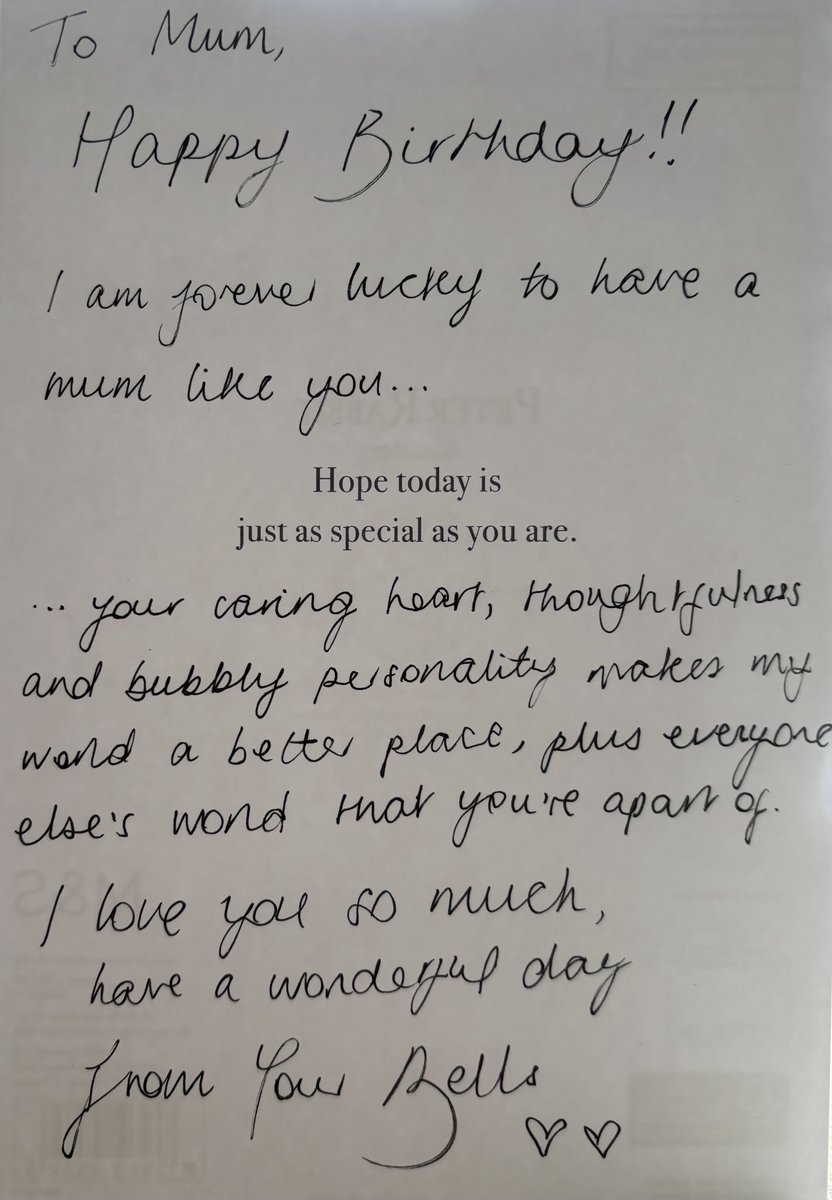 To Mum,
Happy Birthday!!
I am forever lucky to have a
mum like you...
Hope today is
just as special as you are.
... your caring heart, thoughtfulness
and bubbly personality makes my
world a better place, plus everyone
else's world that you're apart of.
I love you so much,
have a wonderful day
From Your Bells